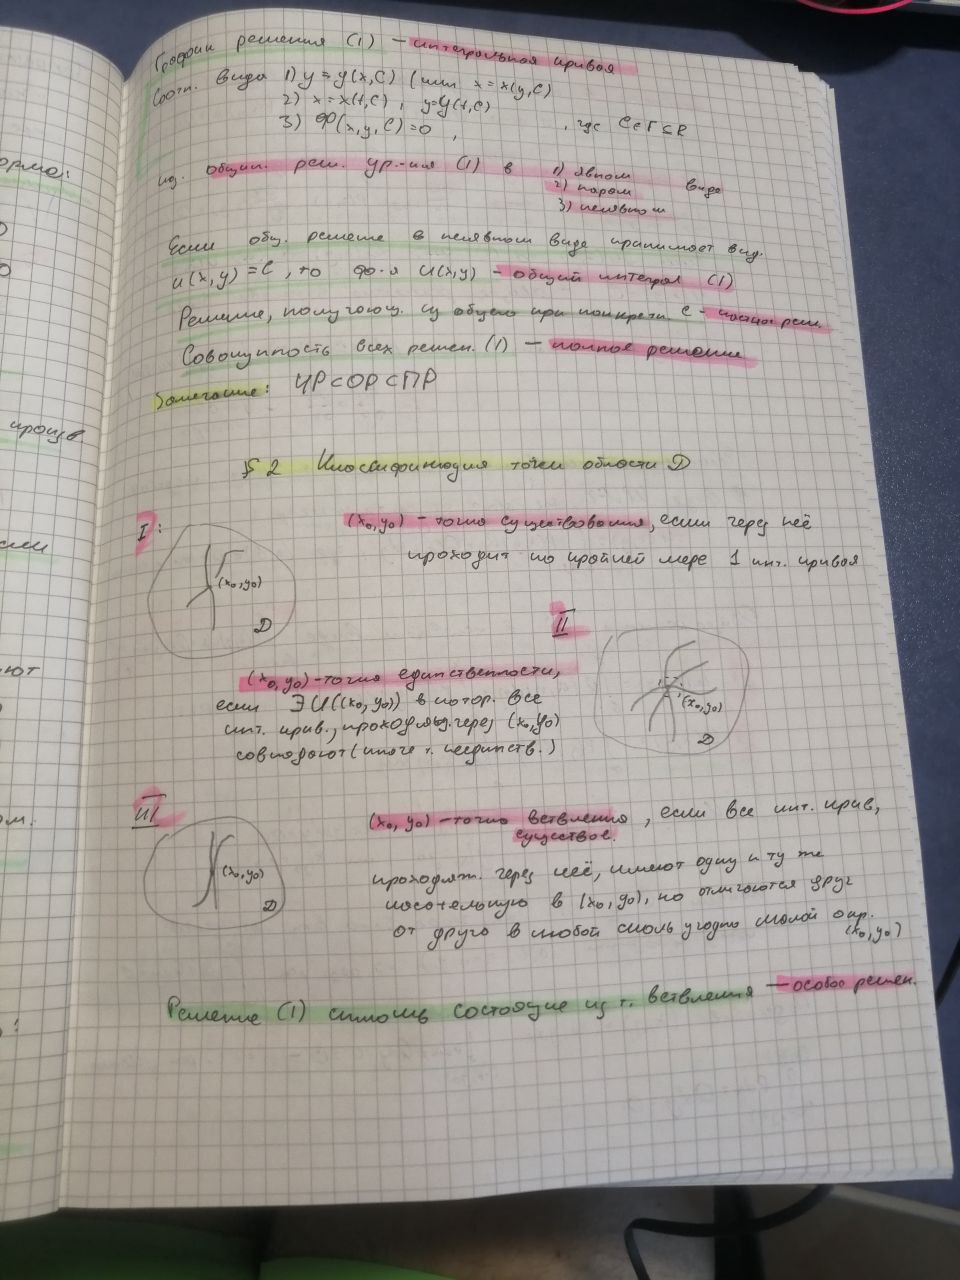 График решения (1) – интегральная кривая
Соотн. вида 1) y = y(x,C) (или x = x(y,C)
2) x = x(t,C), y = y(t,C)
3) Φ(x,y,C) = 0, , где C ∈ Γ ⊆ R
наз. общим. реш. ур.-ия (1) в 1) явном виде
2) парам
3) неявном
Если общ. решение в неявном виде принимает вид.
u(x,y) = C, то ф-я u(x,y) – общий интеграл (1)
Решение, получающ. из общего при конкретн. C – частное реш.
Совокупность всех решен. (1) – полное решение
Замечание: ЧР ⊂ ОР ⊂ ПР
§ 2 Классификация точек области D
I:
(x₀, y₀) – точка существования, если через неё
проходит по крайней мере 1 инт. кривая
(x₀, y₀)
D
II
(x₀, y₀) – точка единственности,
если ∃ U((x₀, y₀)) в котор. все
инт. крив., проходящ. через (x₀, y₀)
совпадают (иначе т. неединств.)
(x₀, y₀)
D
III
(x₀, y₀) – точка ветвления, если все инт. крив,
существов.
проходят. через неё, имеют одну и ту же
касательную в (x₀, y₀), но отличаются друг
от друга в любой сколь угодно малой окр.
(x₀, y₀)
(x₀, y₀)
D
Решение (1) сплошь состоящие из т. ветвления – особое решен.